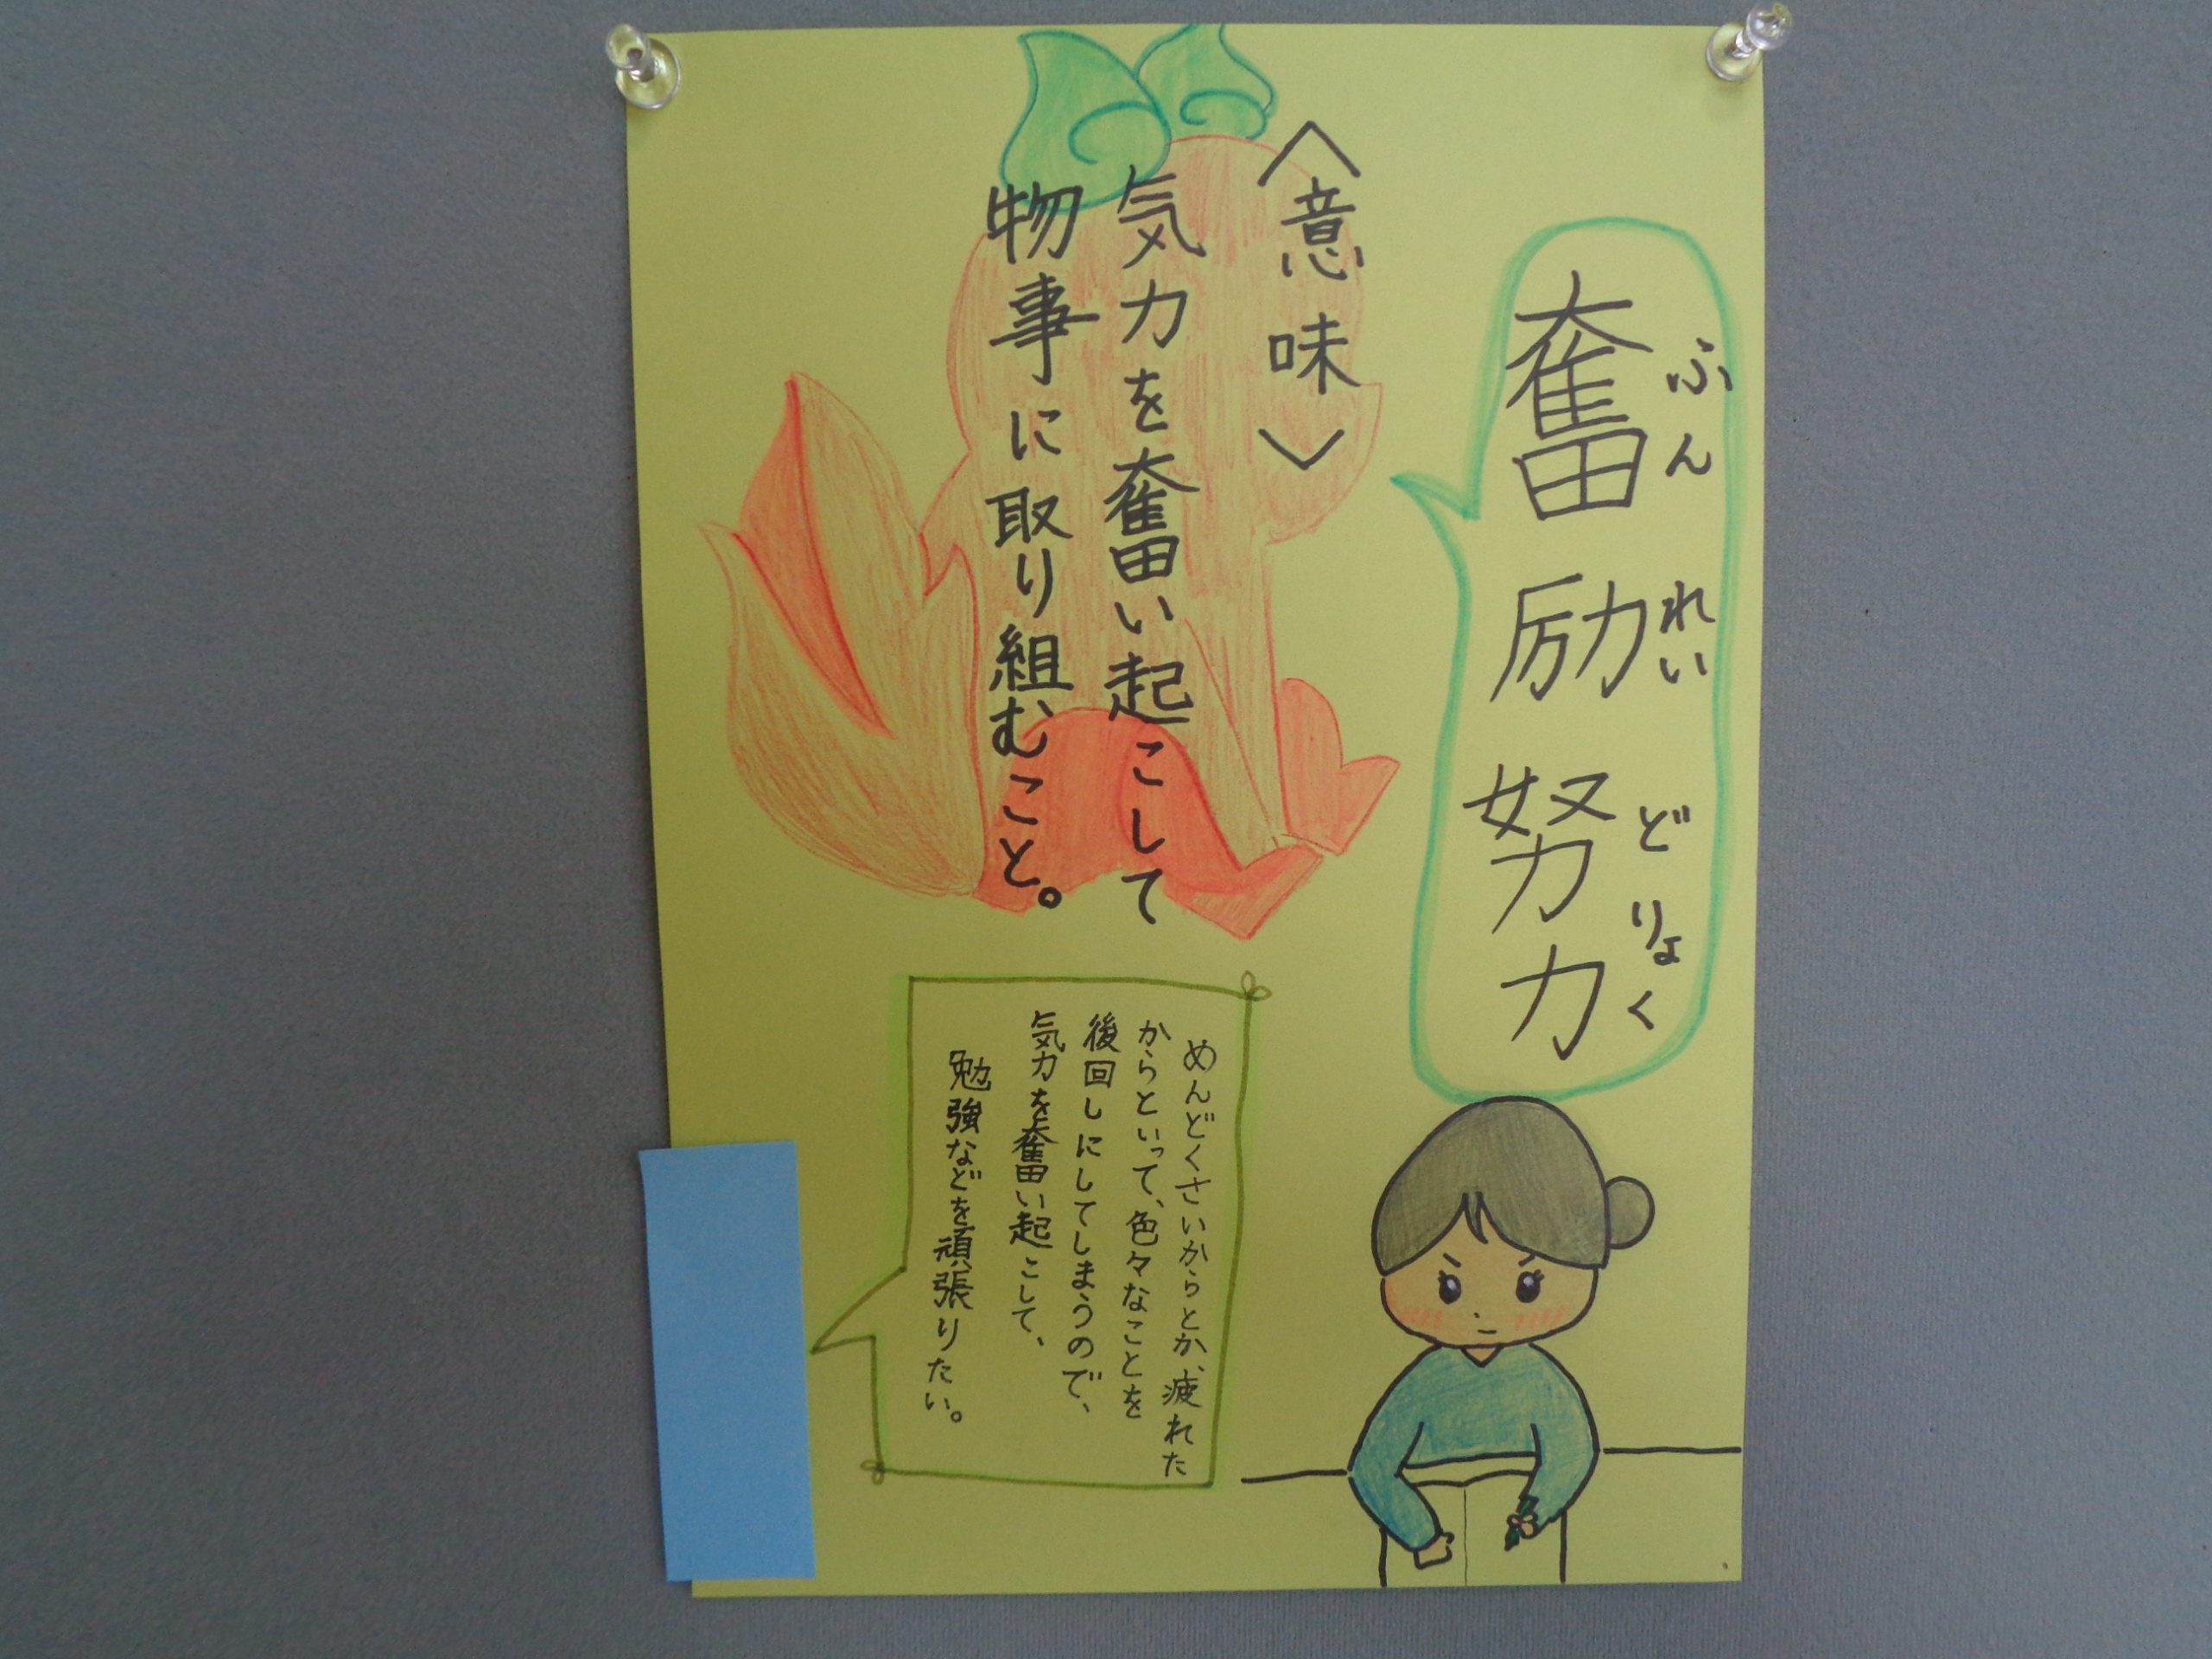 奮励努力
ふんれいどりょく
〈意味〉
気力を奮い起こして
物事に取り組むこと。
めんどくさいからとか、疲れた
からといって、色々なことを
後回しにしてしまうので、
気力を奮い起こして、
勉強などを頑張りたい。